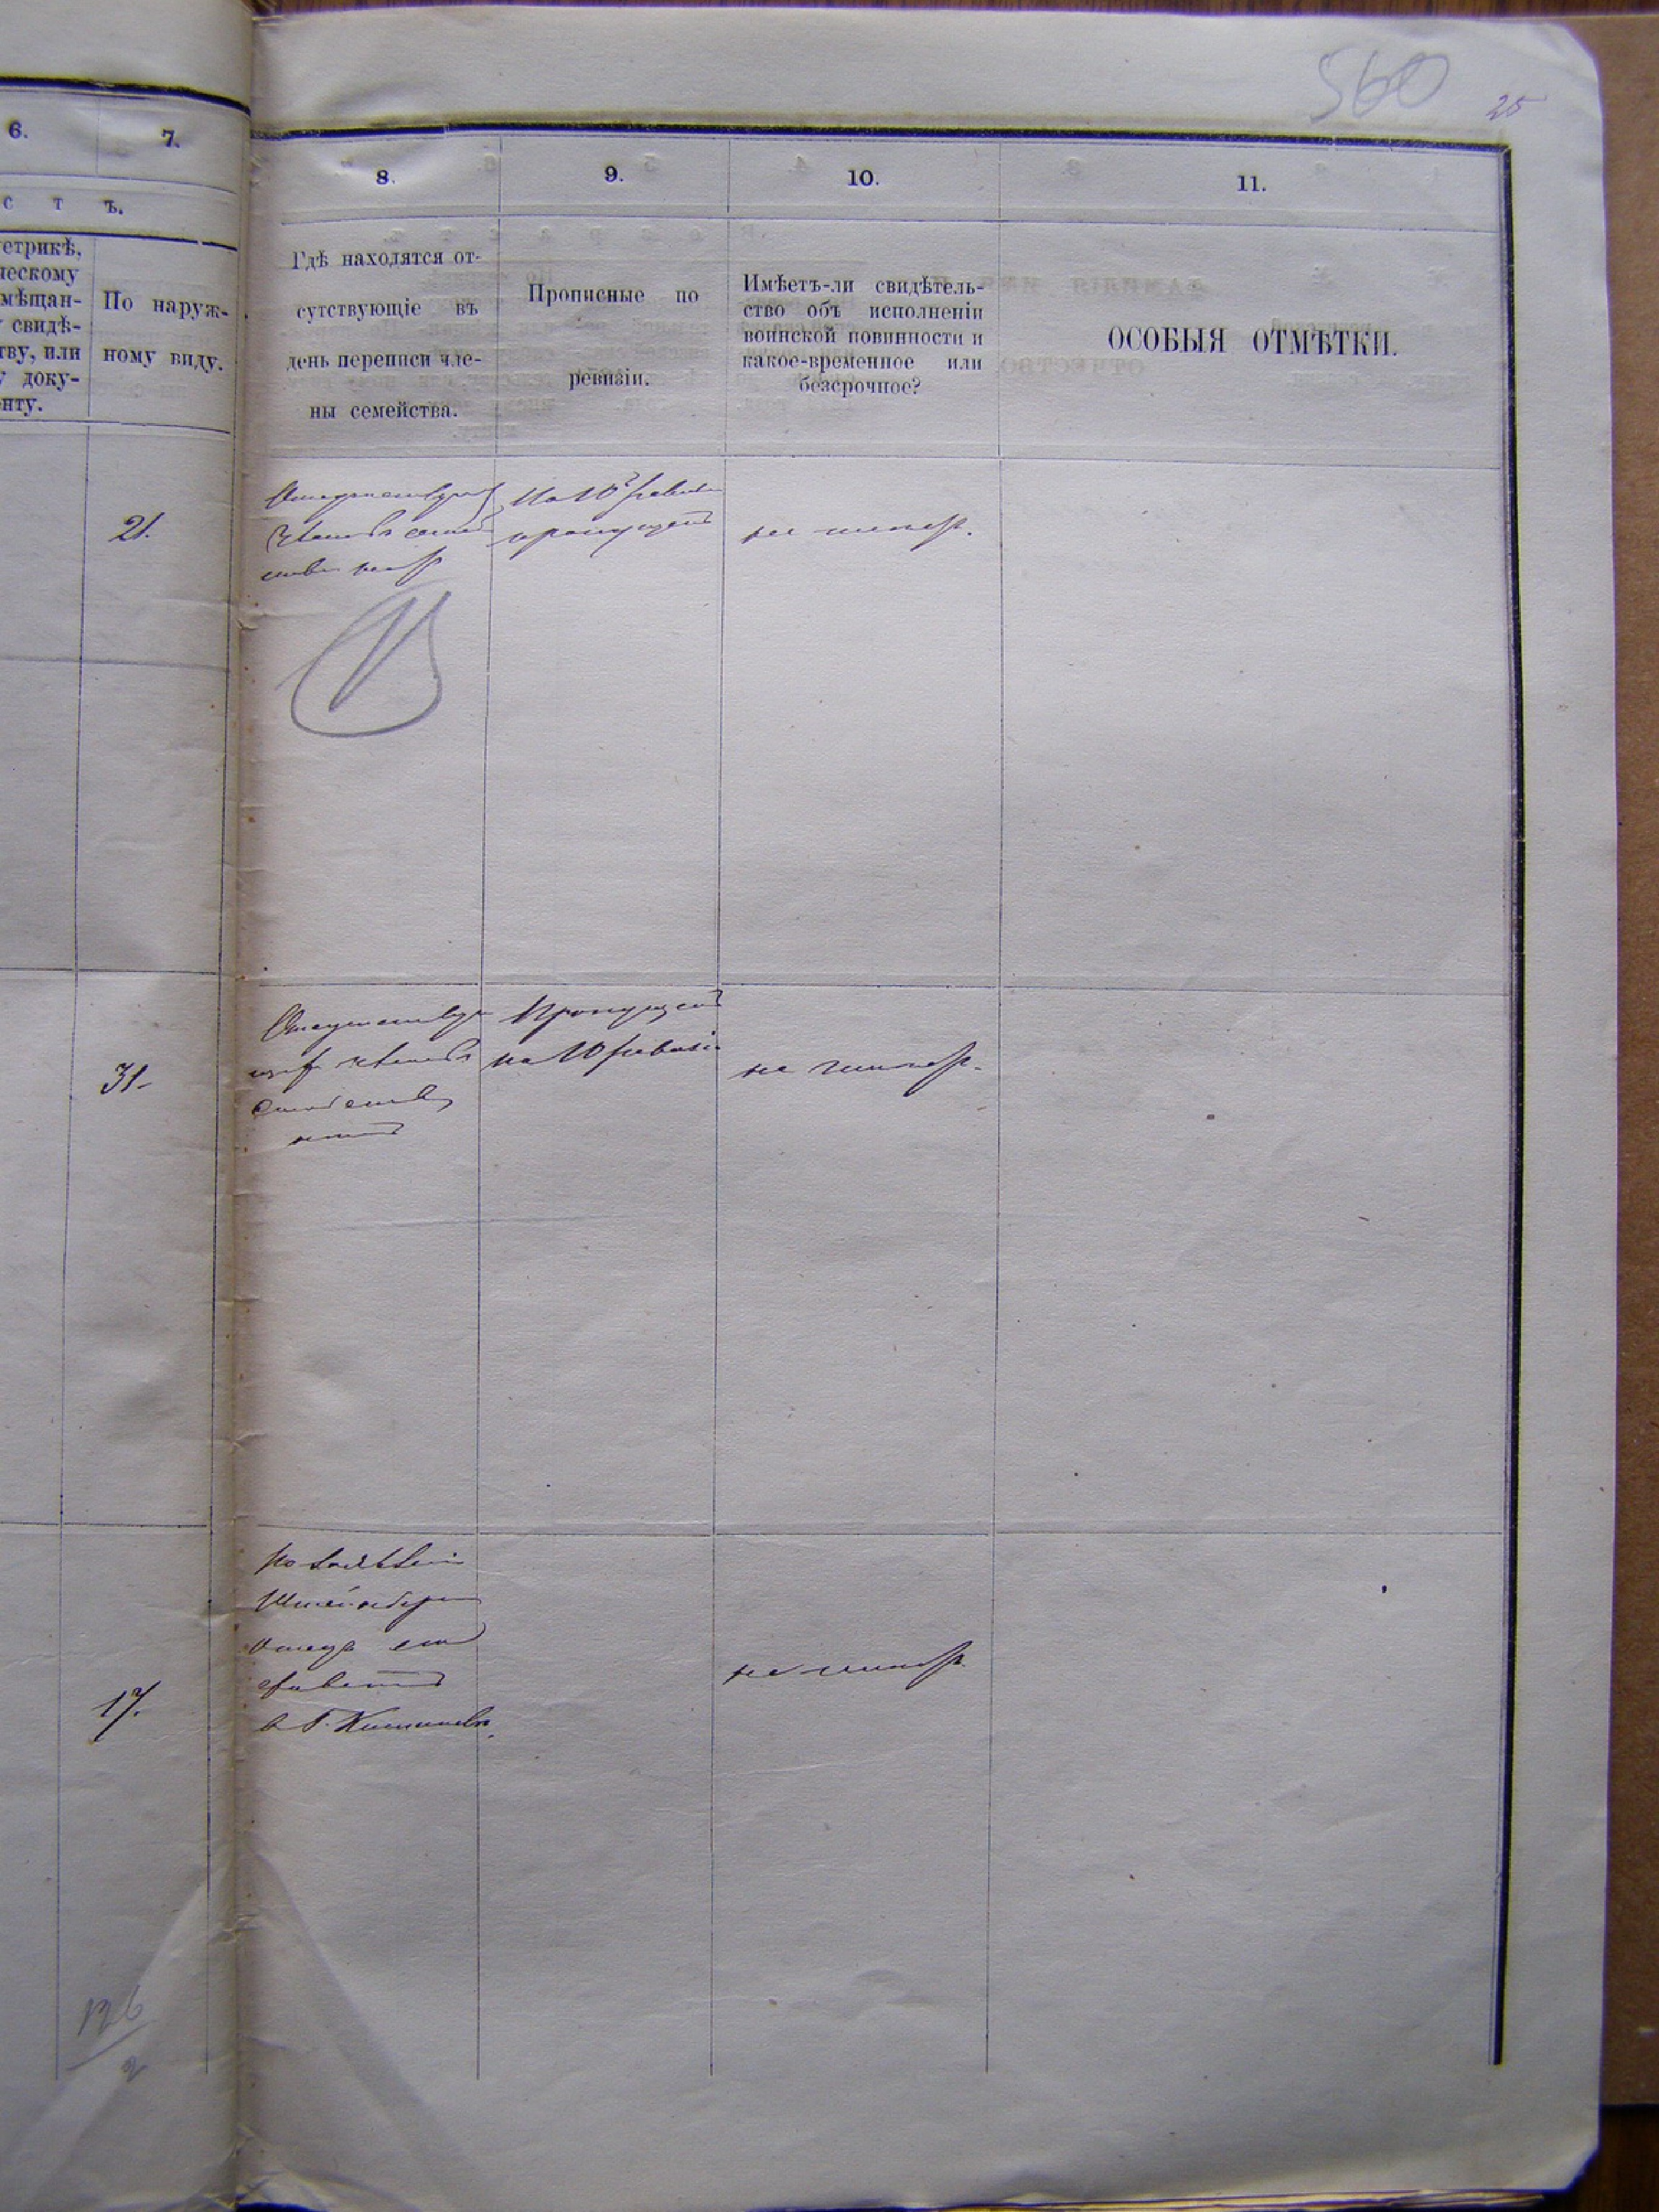 560
25
6.
7.
8.
9.
10.
11.
с т ъ.
етрикѣ,
ческому
мѣщан-
свидѣ-
тву, или
у доку-
нту.
По наруж-
ному виду.
Гдѣ находятся от-
сутствующіе въ
день переписи чле-
ны семейства.
Прописные по
ревизіи.
Имѣетъ-ли свидѣтель-
ство объ исполненіи
воинской повинности и
какое-временное или
безсрочное?
ОСОБЫЯ ОТМѢТКИ.
21.
На 10 ревизіи
пропущенъ
не имеетъ.
31.
Отсутствую
щихъ членовъ
семейства
нетъ
Пропущенъ
на 10 ревизіи
не имеетъ.
17.
По заявленію
отецъ
в Г. Кишиневе.
не имеетъ.
126
2